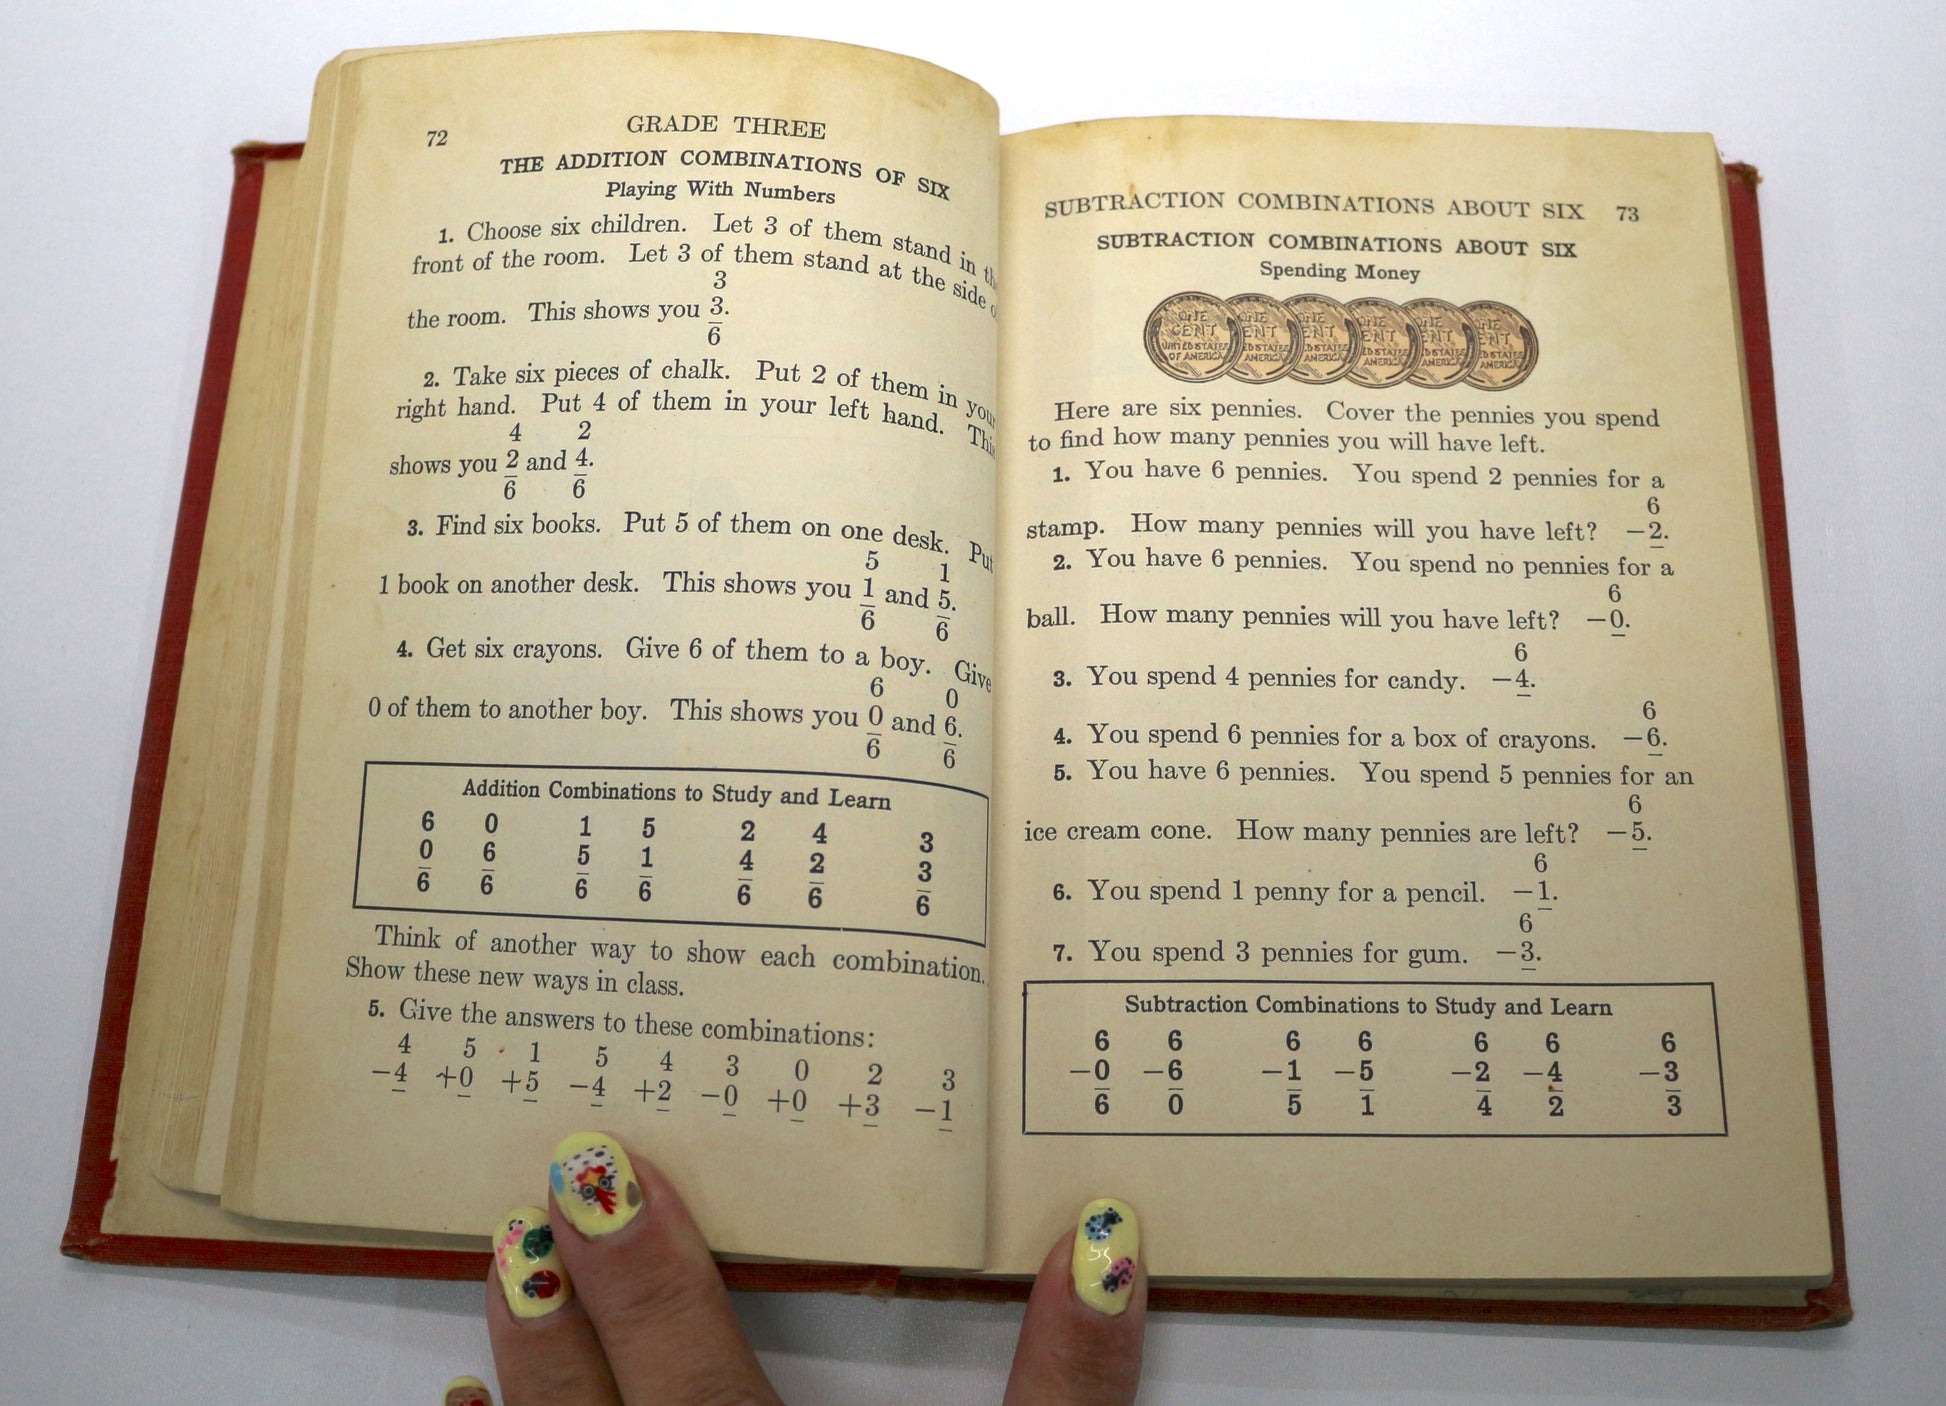 72
GRADE THREE
THE ADDITION COMBINATIONS OF SIX
Playing With Numbers
1. Choose six children. Let 3 of them stand in
front of the room. Let 3 of them stand at the side
3
the room. This shows you 3.
6
2. Take six pieces of chalk. Put 2 of them in your
right hand. Put 4 of them in your left hand. This
4 2
shows you 2 and 4.
6 6
3. Find six books. Put 5 of them on one desk. Put
5 1
1 book on another desk. This shows you 1 and 5.
6 6
4. Get six crayons. Give 6 of them to a boy. Give
6 0
0 of them to another boy. This shows you 0 and 6.
6 6
Addition Combinations to Study and Learn
6 0 1 5 2 4 3
0 6 5 1 4 2 3
6 6 6 6 6 6 6
Think of another way to show each combination.
Show these new ways in class.
5. Give the answers to these combinations:
4 5 1 5 4 3 0 2 3
−4 +0 +5 −4 +2 −0 +0 +3 −1
SUBTRACTION COMBINATIONS ABOUT SIX 73
SUBTRACTION COMBINATIONS ABOUT SIX
Spending Money
ONE ONE ONE ONE ONE ONE
CENT ENT ENT ENT ENT ENT
UNITED STATES ED STATES ED STATES ED STATES ED STATES ED STATES
OF AMERICA AMERICA AMERICA AMERICA AMERICA AMERICA
Here are six pennies. Cover the pennies you spend
to find how many pennies you will have left.
1. You have 6 pennies. You spend 2 pennies for a
6
stamp. How many pennies will you have left? −2.
2. You have 6 pennies. You spend no pennies for a
6
ball. How many pennies will you have left? −0.
6
3. You spend 4 pennies for candy. −4.
6
4. You spend 6 pennies for a box of crayons. −6.
5. You have 6 pennies. You spend 5 pennies for an
6
ice cream cone. How many pennies are left? −5.
6
6. You spend 1 penny for a pencil. −1.
6
7. You spend 3 pennies for gum. −3.
Subtraction Combinations to Study and Learn
6 6 6 6 6 6 6
−0 −6 −1 −5 −2 −4 −3
6 0 5 1 4 2 3